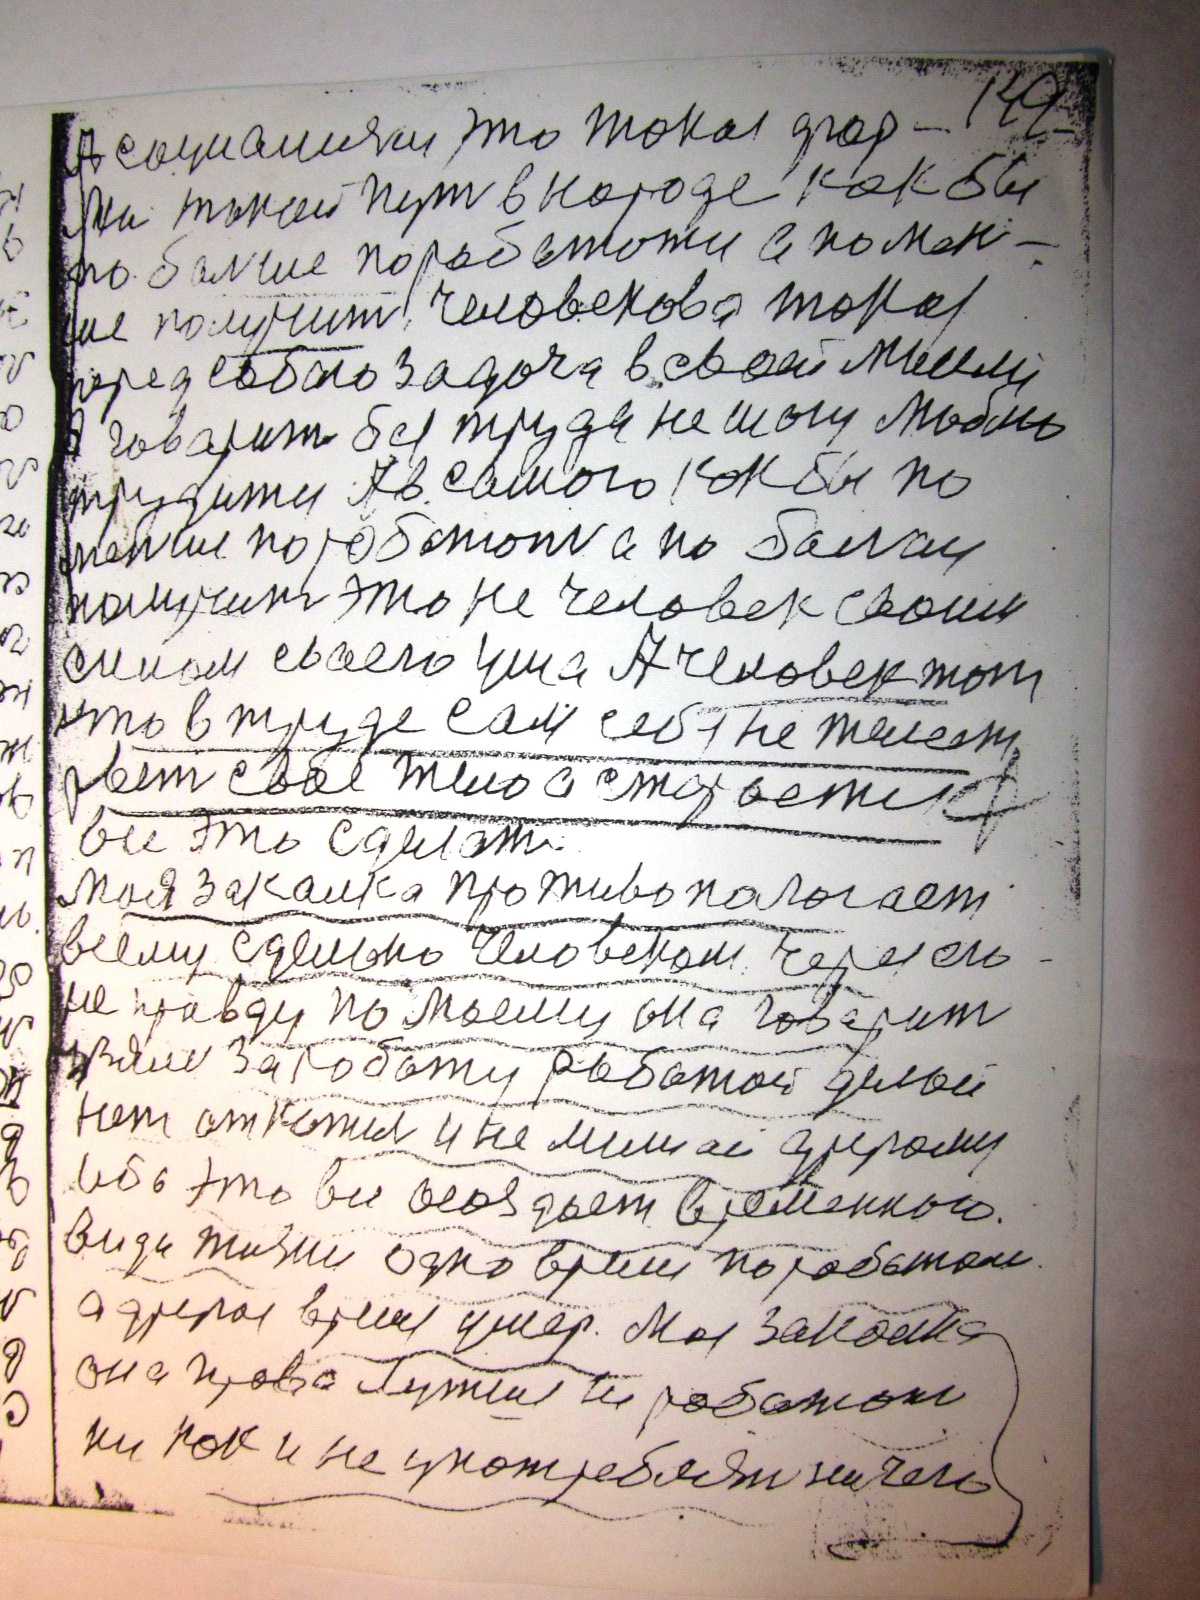 149
А социализм это такая
такой путь в народе как бы
по больше поработати а по мен-
ше получит человекова такая
перед собою задача в своей мысли
А говарит без труда не могу
трудити А в самого как бы по
менше поработоть а по
получить это не человек своим
своего ума А человек тот
кто в труде сам себя не жалеет
рвет свое тело а стараетися
все это сделать.
моя закалка противопологает
всему сделано человеком через его
не правду по моему она говарит
взяли за работу работай делай
нет откажися и не мишай другому
ибо это все создает временного.
види жизни одно время поработал
а другое время умер. Моя закалка
она права лутше не работать
ни как и не употреблять ничего